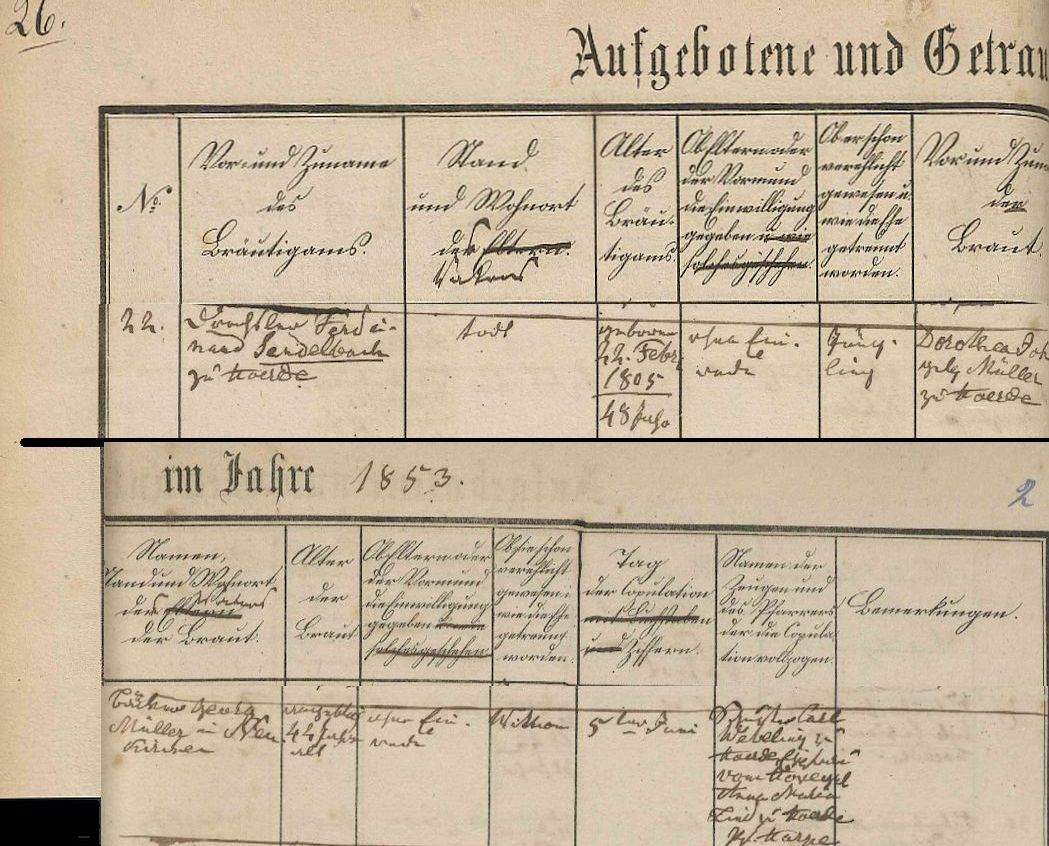 26.
Aufgebotene und Getrau
No.
Vor und Zuname
des
Bräutigams.
Stand
und Wohnort
des Eltern.
Vaters
Alter
des
Bräu-
tigams.
Ob Eltern oder
der Vormund
die Einwilligung
gegeben u. wie
solches geschehen.
Ob er schon
verehlicht
gewesen u.
wie die Ehe
getrennt
worden.
Vor und Zuna
der
Braut.
22.
Drechsler Ferdi-
nand Sendelbach
zu Hoerde
todt
geboren
22. Febr
1805
48 Jahr
ohne Ein-
rede
Jüng-
ling
Dorothea Joh
Müller
zu Hoerde
im Jahre 1853.
2
Namen,
Stand und Wohnort
der Eltern Vaters
der Braut.
Alter
der
Braut
Ob Eltern oder
der Vormund
die Einwilligung
gegeben
solches geschehen.
Ob sie schon
verehlicht
gewesen u.
wie die Ehe
getrennt
worden.
Tag
der Copulation
mit Buchstaben
und Ziffern.
Namen der
Zeugen und
des Pfarrers
der die Copula-
tion vollzogen.
Bemerkungen.
Georg
Müller in Neu
kirchen
44 Jahr
alt
ohne Ein-
rede
Wittwe
5ten Juni
Carl
Webeling zu
Hoerde
vom
Anna Maria
Lind zu Hoerde